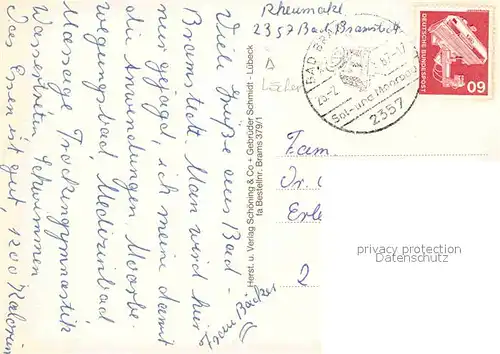 Viele Grüße aus Bad-
Bramstedt. Man wird hier
nur gejagd, ich meine damit
die Anwendungen. Moorbe.
wegungsbad, Medizinbad
Massage Trockengymnastik
Wassertreten Schwimmen
Das Essen ist gut, 1200 Kalorien
Frau Bäcker
Herst. u. Verlag Schöning & Co + Gebrüder Schmidt - Lübeck
fa Bestellnr. Brams 379/1
Rheumakl
2357 Bad Bramstedt
BAD BR
87-17
Sol- und Moorbad
2357
DEUTSCHE BUNDESPOST
60
Fam.
Dr.
Erle
2
privacy protection
Datenschutz